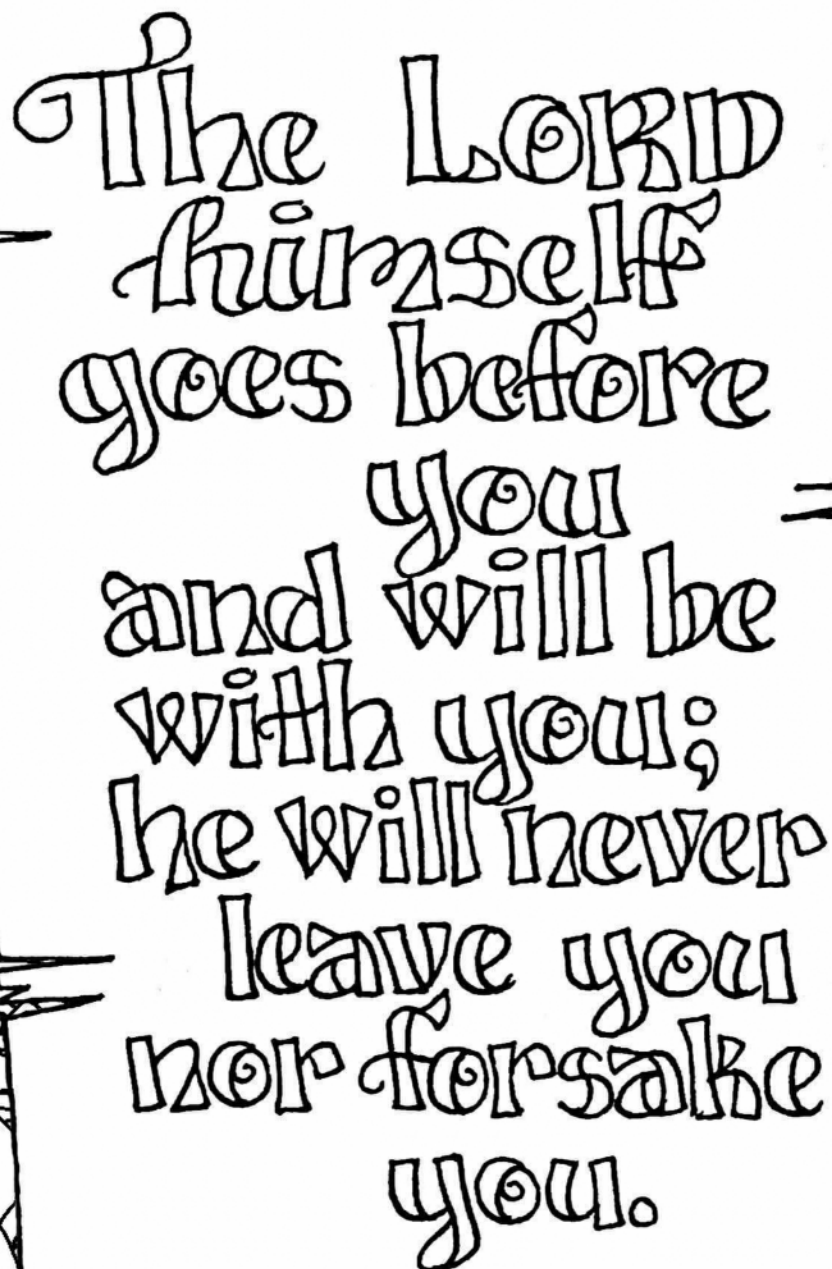 The LORD
himself
goes before
you
and will be
with you;
he will never
leave you
nor forsake
you.